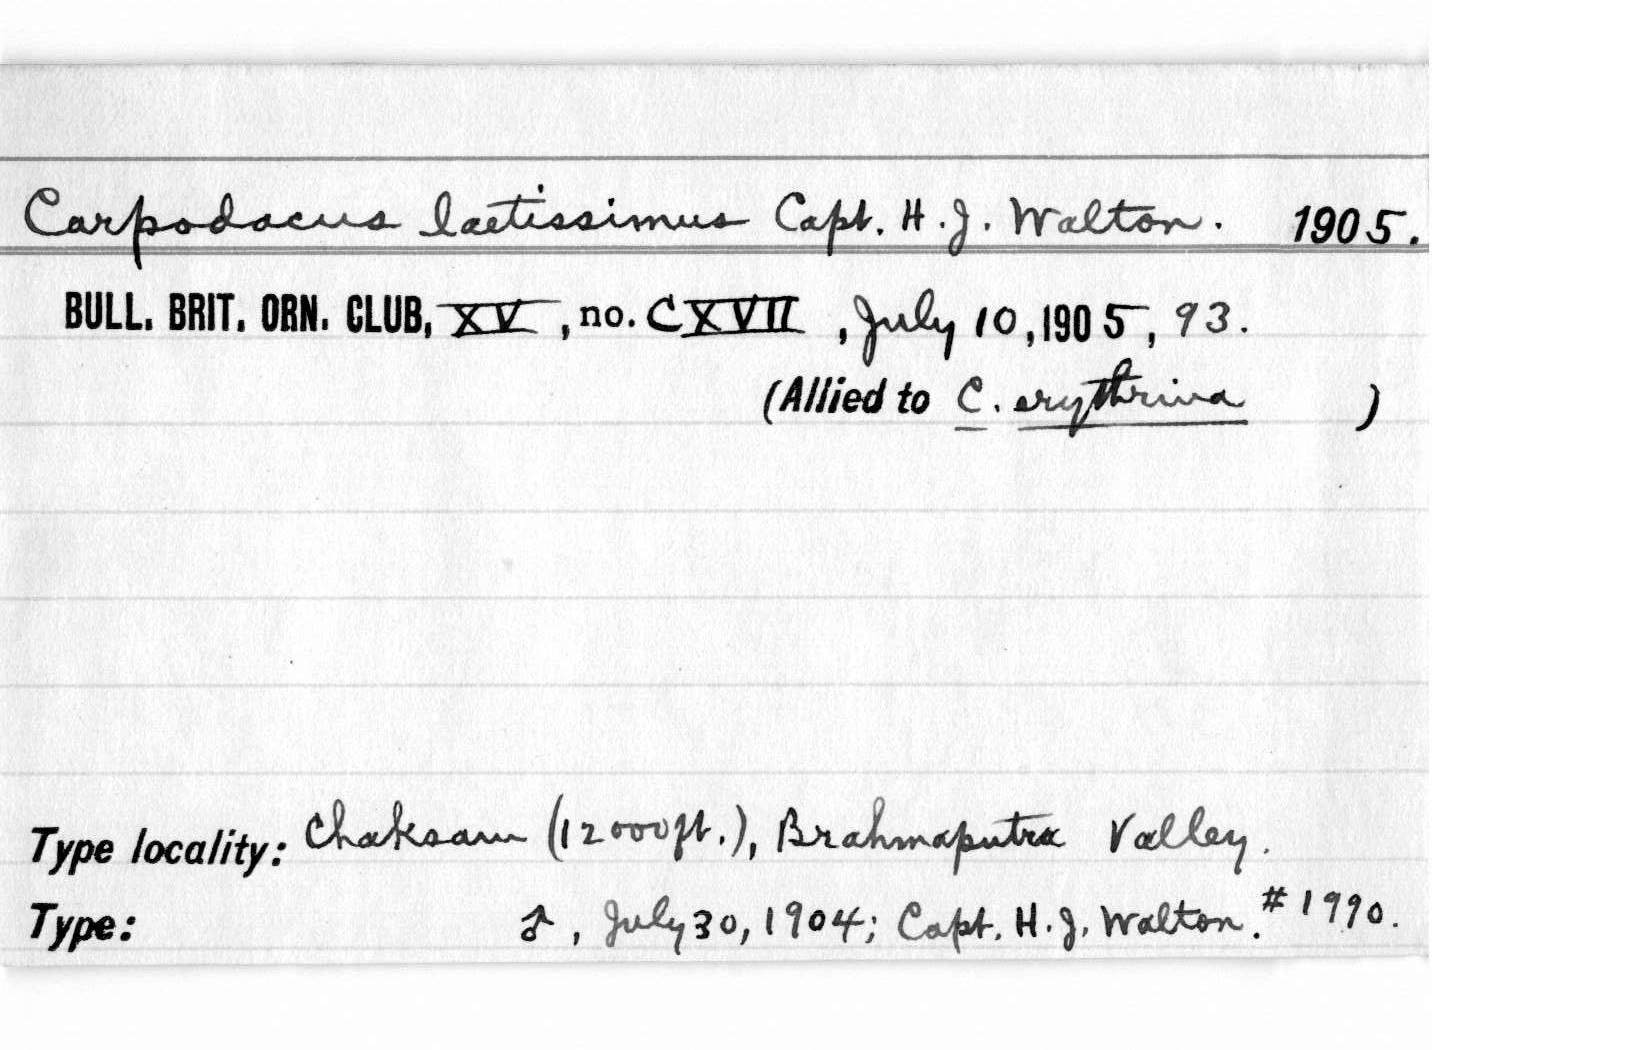 Carpodacus laetissimus Capt. H. J. Walton. 1905.
BULL. BRIT. ORN. CLUB, XV, no. CXVII, July 10, 1905, 93.
(Allied to C. erythrina )
Type locality: Chaksam (12000ft.), Brahmaputra Valley.
Type: ♂, July 30, 1904; Capt. H. J. Walton. # 1990.